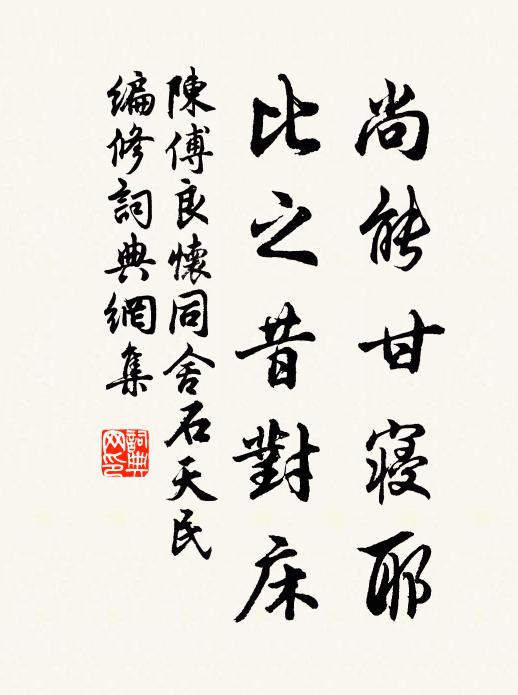 尚能甘寢耶
比之昔對床
陳傅良懷同舍石天民
編修詞典網集
詞典网印